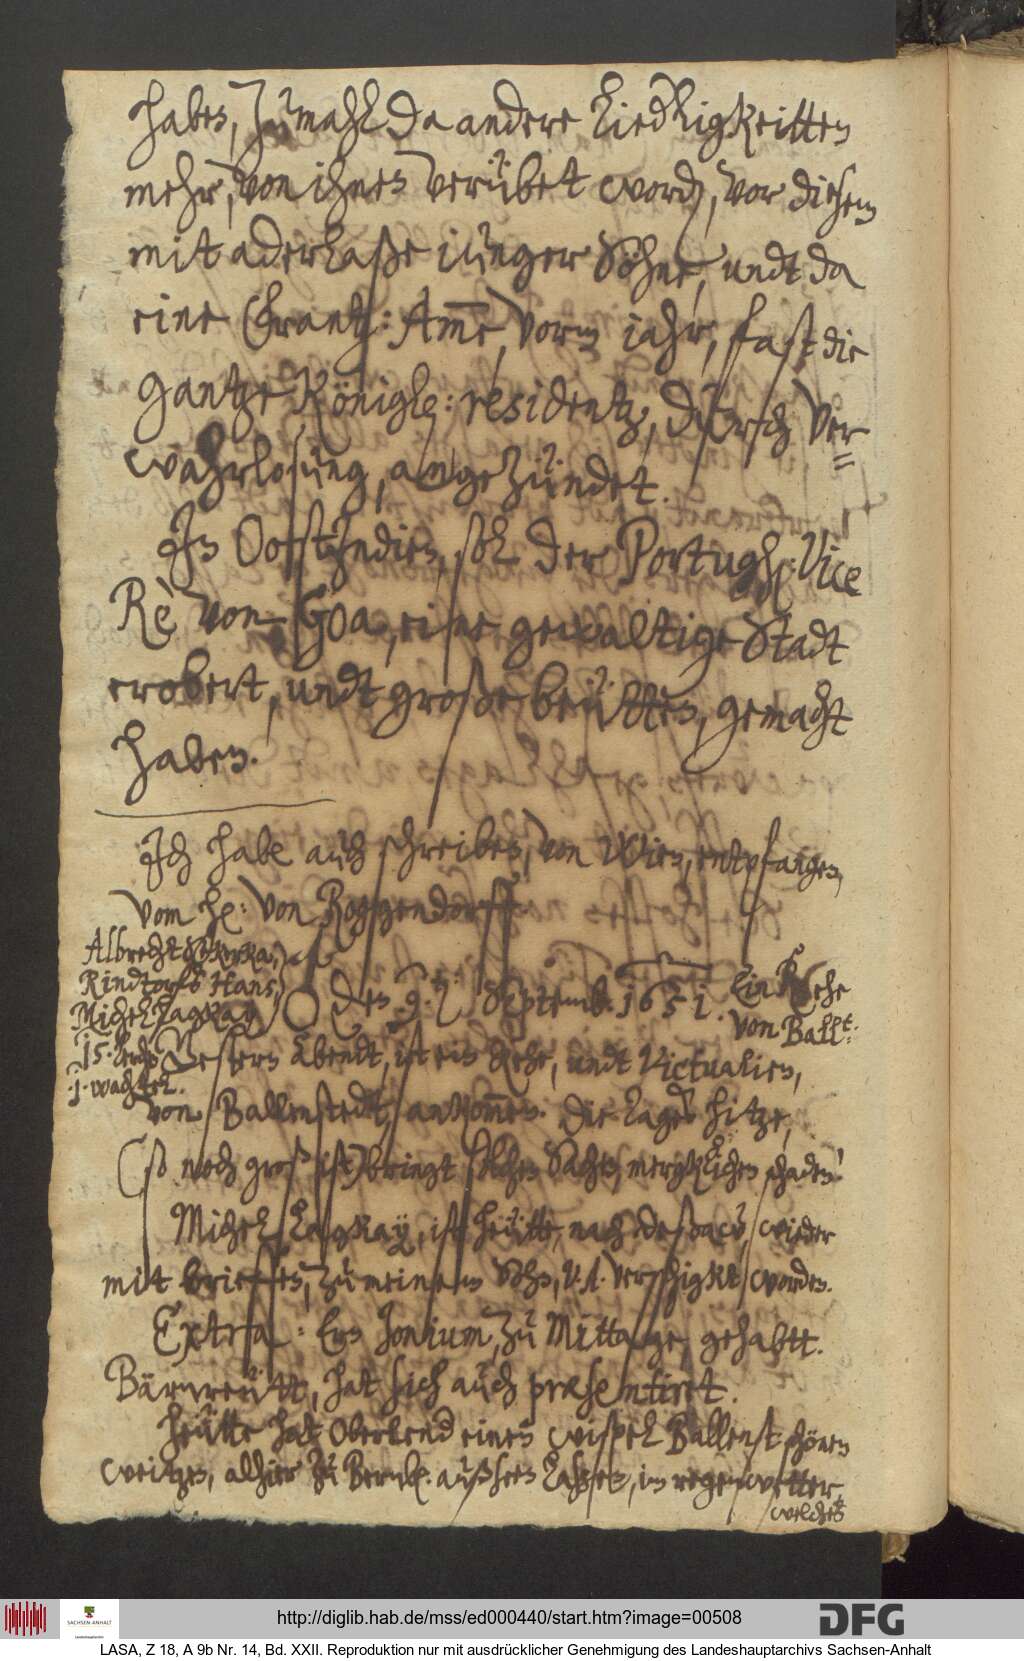 haben, zumahl da andere Liedrligkeitten
mehr, von ihnen verübet word, vor diesem
mit aderlaße iunger Söhne, undt da
eine Crantz: Ame, vorm iahr, fast die
gantze Königle: residentz, durch Ver=
wahrlosung, angezündet.
In OostIndien, soll der Portugh: Vice
Rè von Goa, eine gewaltige Stadt
erobert, undt große beütten, gemacht
haben.
Ich habe auch schreiben, von Wien, entpfangen,
vom he: von Roggendorff
Albrecht
Rindtorf Hans,
Michel Lagkay
15. Lerch
1. wachtel.
☉ den 9. Septemb. 1651.
Ein Rehe
von Ball:
Gestern Abendt, ist ein Rehe, undt Victualien,
von Ballenstedt, ankommen. Die Lages hitze,
(so noch groß ist) bringt solchen Sachen, mergklichen schaden!
Michel Lagkay, ist heütte, nach deßaw, wieder
mit briefen, zu meinem Sohn, V. A. verschigkt worden.
Extra: Ern Jonium, zu Mittage, gehabtt.
Bärnreütt, hat sich auch præsentiret.
Heütte hat Oberlend einen wispel Ballenst: schönen
weitzen, alhier zu Bernb. außseen laßen, in regenwetter,
welches
http://diglib.hab.de/mss/ed000440/start.htm?image=00508
SACHSEN-ANHALT
DFG
LASA, Z 18, A 9b Nr. 14, Bd. XXII. Reproduktion nur mit ausdrücklicher Genehmigung des Landeshauptarchivs Sachsen-Anhalt